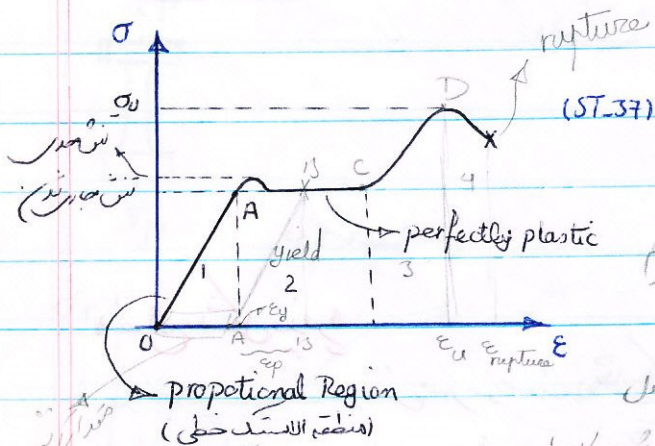 σ
rupture
σu
D
(ST_37)
تنش حدی
تنش جاری شدن
B
C
4
A
perfectly plastic
yield
1
2
3
εy
O
A
B
εp
εu
εrupture
ε
propotional Region
(منطقه الاستیک خطی)